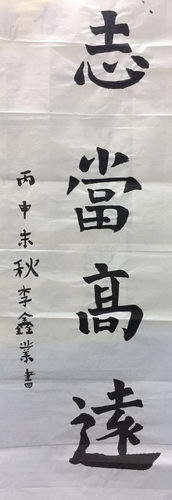 志當高遠
丙申末秋李鑫業書